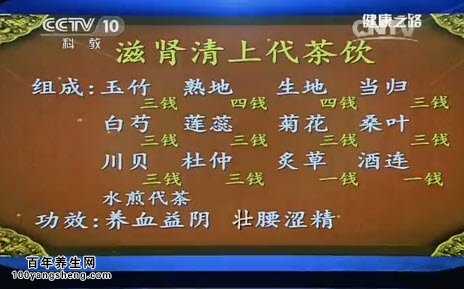 CCTV 10
科教
健康之路
CNTV
滋肾清上代茶饮
组成:玉竹 熟地 生地 当归
三钱 四钱 四钱 三钱
白芍 莲蕊 菊花 桑叶
三钱 三钱 三钱 三钱
川贝 杜仲 炙草 酒连
三钱 三钱 一钱 一钱
水煎代茶
功效:养血益阴 壮腰涩精
百年养生网
100yangsheng.com